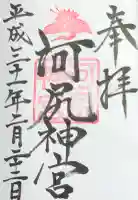 奉拝
河尻神宮
平成二十一年二月二十二日